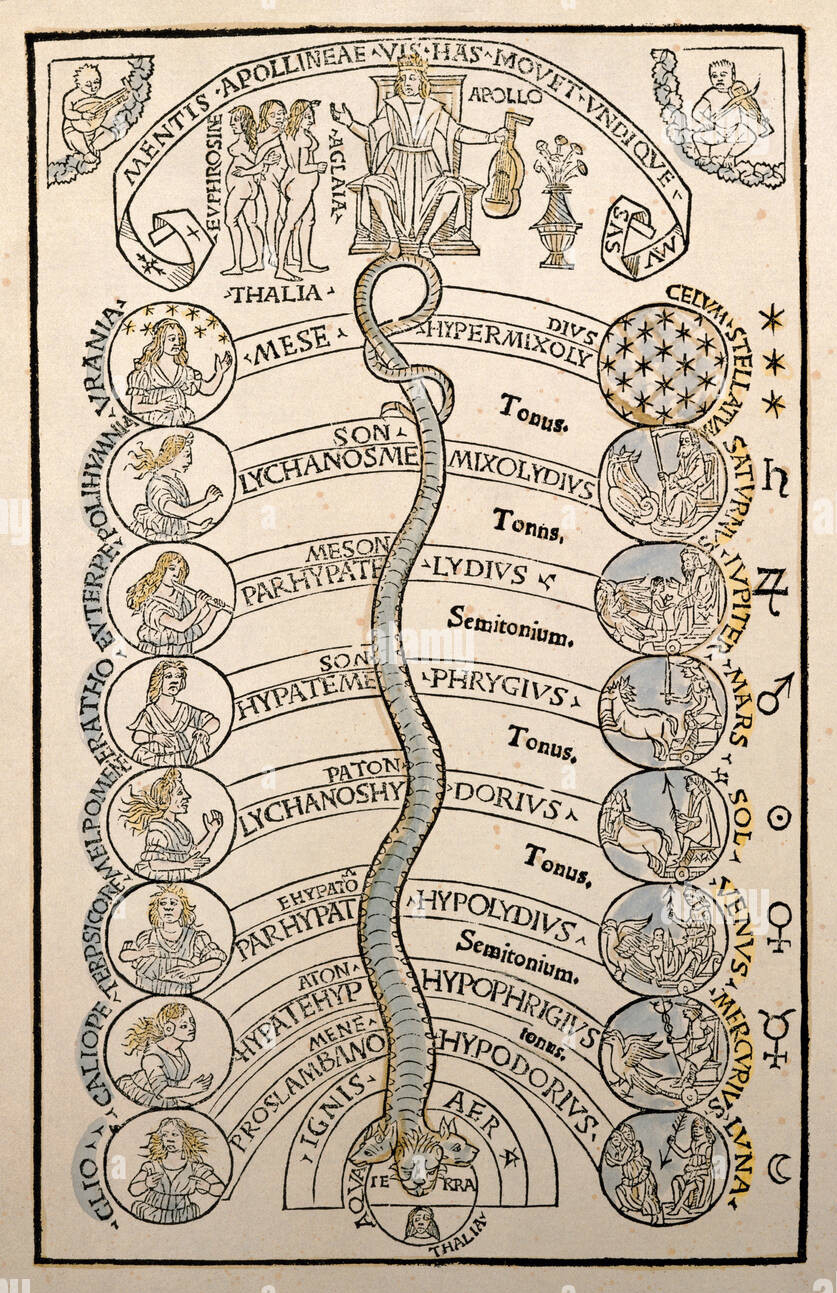 MENTIS · APOLLINEAE · VIS · HAS · MOVET · VNDIQVE
MV
SAS
APOLLO
EVPHROSINE
AGLAIA
THALIA
VRANIA
MESE
HYPERMIXOLY
DIVS
CELVM STELLATVM
Tonus.
POLIHYMNIA
LYCHANOSME
SON
MIXOLYDIVS
SATVRNVS
Tonns.
EVTERPE
PARHYPATE
MESON
LYDIVS
IVPITER
Semitonium.
ERATHO
HYPATEME
SON
PHRYGIVS
MARS
Tonus.
MELPOMENE
LYCHANOSHY
PATON
DORIVS
SOL
Tonus.
TERPSICORE
PARHYPAT
EHYPATO
HYPOLYDIVS
VENVS
Semitonium.
CALIOPE
HYPATEHYP
ATON
HYPOPHRIGIVS
MERCVRIVS
tonus.
CLIO
PROSLAMBANO
MENE
HYPODORIVS
LVNA
IGNIS
AER
AQVA
TE RRA
THALIA
alamy